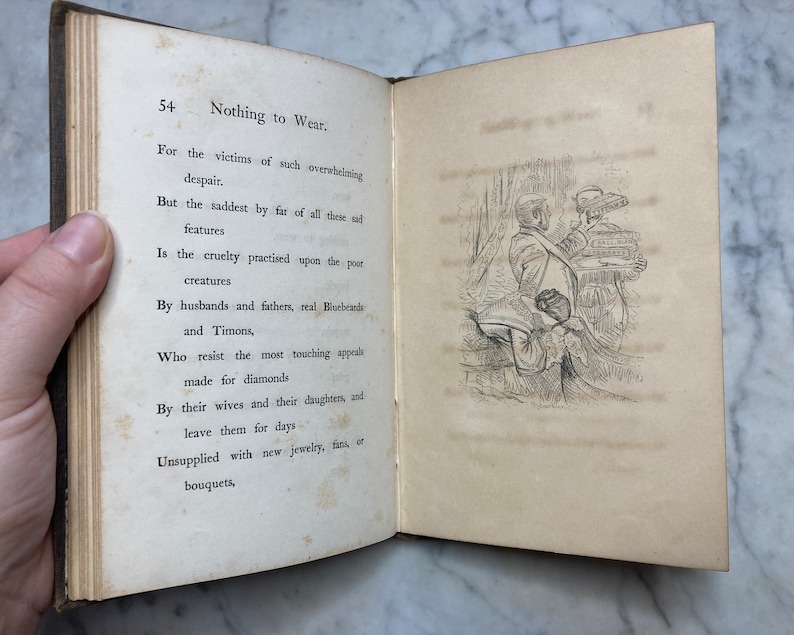 54 Nothing to Wear.
For the victims of such overwhelming
despair.
But the saddest by far of all these sad
features
Is the cruelty practised upon the poor
creatures
By husbands and fathers, real Bluebeards
and Timons,
Who resist the most touching appeals
made for diamonds
By their wives and their daughters, and
leave them for days
Unsupplied with new jewelry, fans, or
bouquets,
BALL. BLACK
STEWARTS